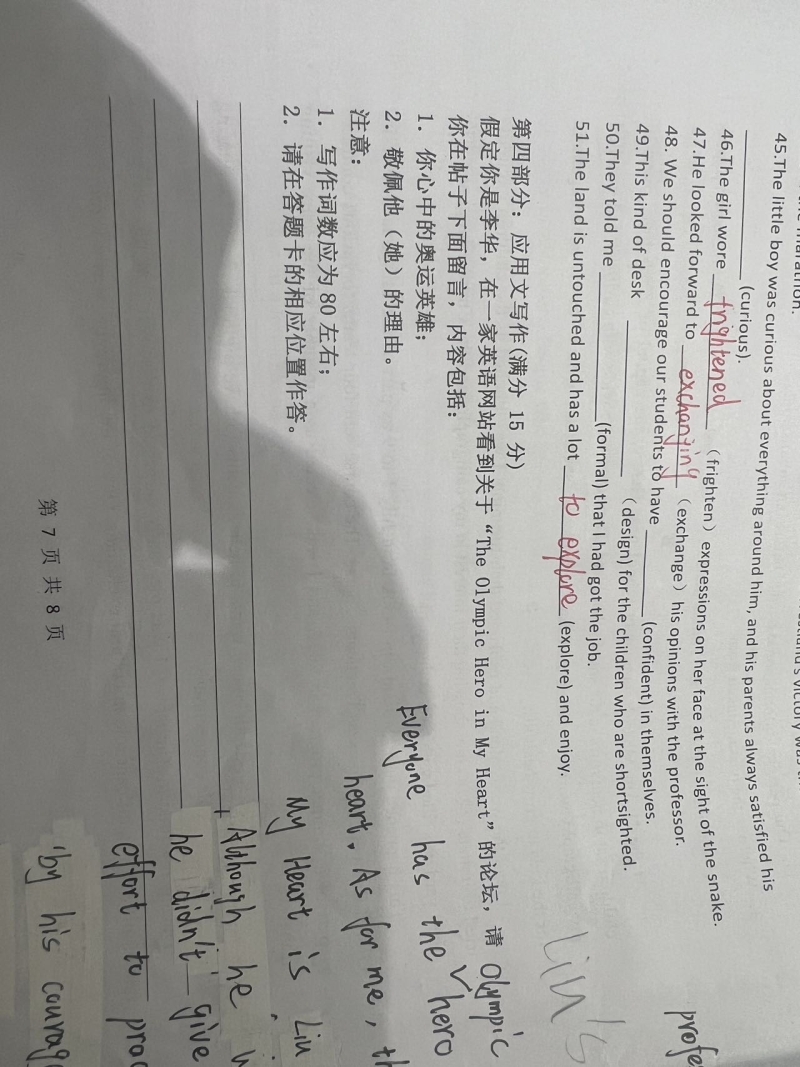 45.The little boy was curious about everything around him, and his parents always satisfied his
________ (curious).
46.The girl wore frightened (frighten) expressions on her face at the sight of the snake.
47.He looked forward to exchanging (exchange) his opinions with the professor.
48. We should encourage our students to have ________ (confident) in themselves.
49.This kind of desk ________ (design) for the children who are shortsighted.
50.They told me ________ (formal) that I had got the job.
51.The land is untouched and has a lot to explore (explore) and enjoy.
Liu's
第四部分：应用文写作(满分 15 分)
假定你是李华，在一家英语网站看到关于“The Olympic Hero in My Heart”的论坛，请
你在帖子下面留言，内容包括：
1. 你心中的奥运英雄；
2. 敬佩他（她）的理由。
注意：
1. 写作词数应为 80 左右；
2. 请在答题卡的相应位置作答。
Olympic
Everyone has the hero
heart. As for me,
My Heart is Liu
Although he
he didn't give
effort to
by his
第 7 页 共 8 页